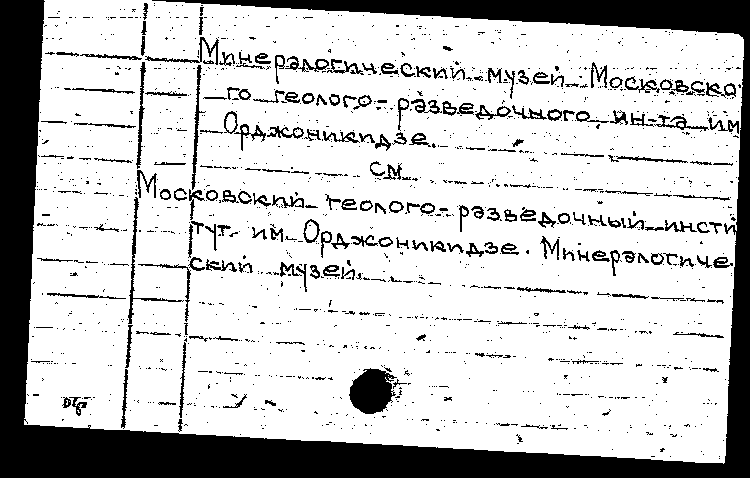 Минералогический музей Московско-
го геолого-разведочного ин-та им
Орджоникидзе.
см
Московский геолого-разведочный инсти
тут им Орджоникидзе. Минералогиче-
ский музей.